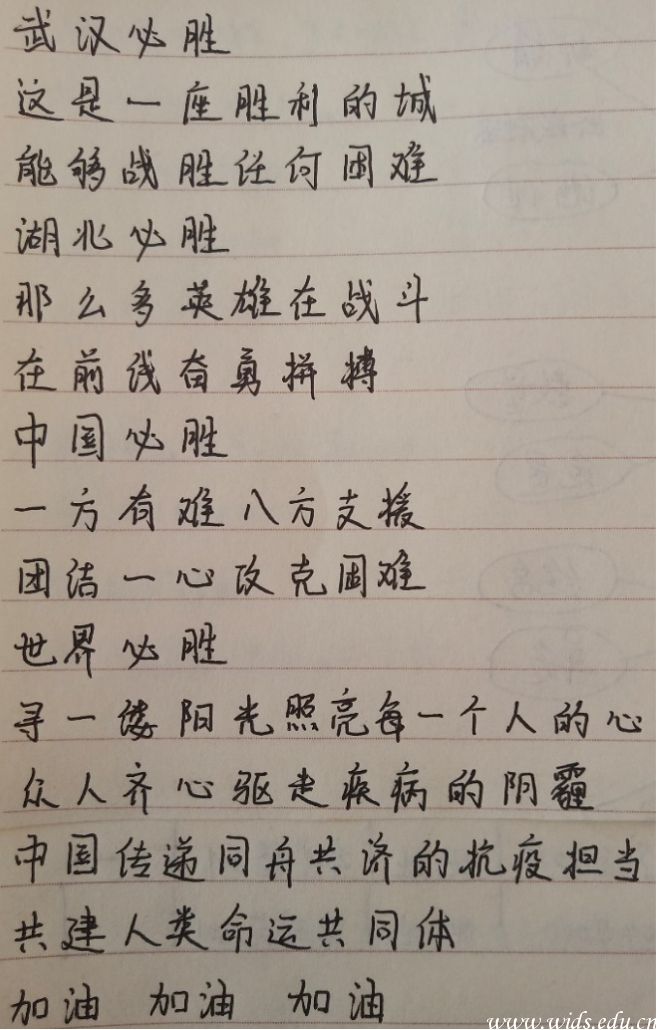 武汉必胜
这是一座胜利的城
能够战胜任何困难
湖北必胜
那么多英雄在战斗
在前线奋勇拼搏
中国必胜
一方有难八方支援
团结一心攻克困难
世界必胜
寻一缕阳光照亮每一个人的心
众人齐心驱走疾病的阴霾
中国传递同舟共济的抗疫担当
共建人类命运共同体
加油 加油 加油
www.wids.edu.cn